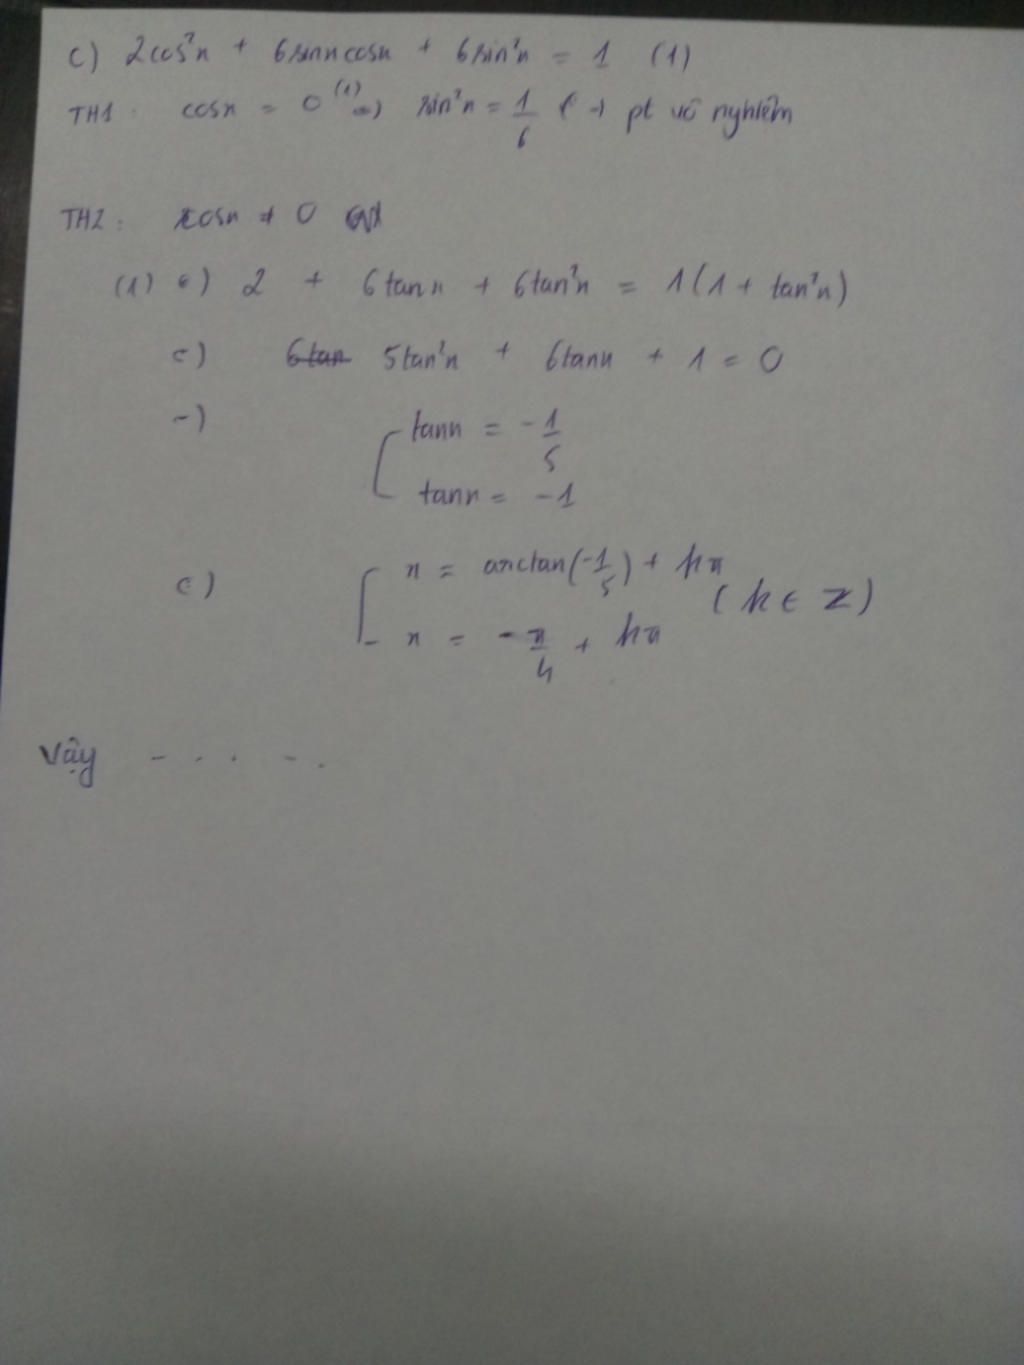 c) 2cos²x + 6sinxcosx + 6sin²x = 1 (1)
TH1: cosx = 0 (1) => sin²x = 1/6 (-> pt vô nghiệm
TH2: cosx ≠ 0
(1) <=> 2 + 6tanx + 6tan²x = 1(1 + tan²x)
<=> 5tan²x + 6tanx + 1 = 0
<=> [ tanx = -1/5
tanx = -1
<=> [ x = arctan(-1/5) + kπ
x = -π/4 + kπ (k ∈ Z)
Vậy - . . . - .